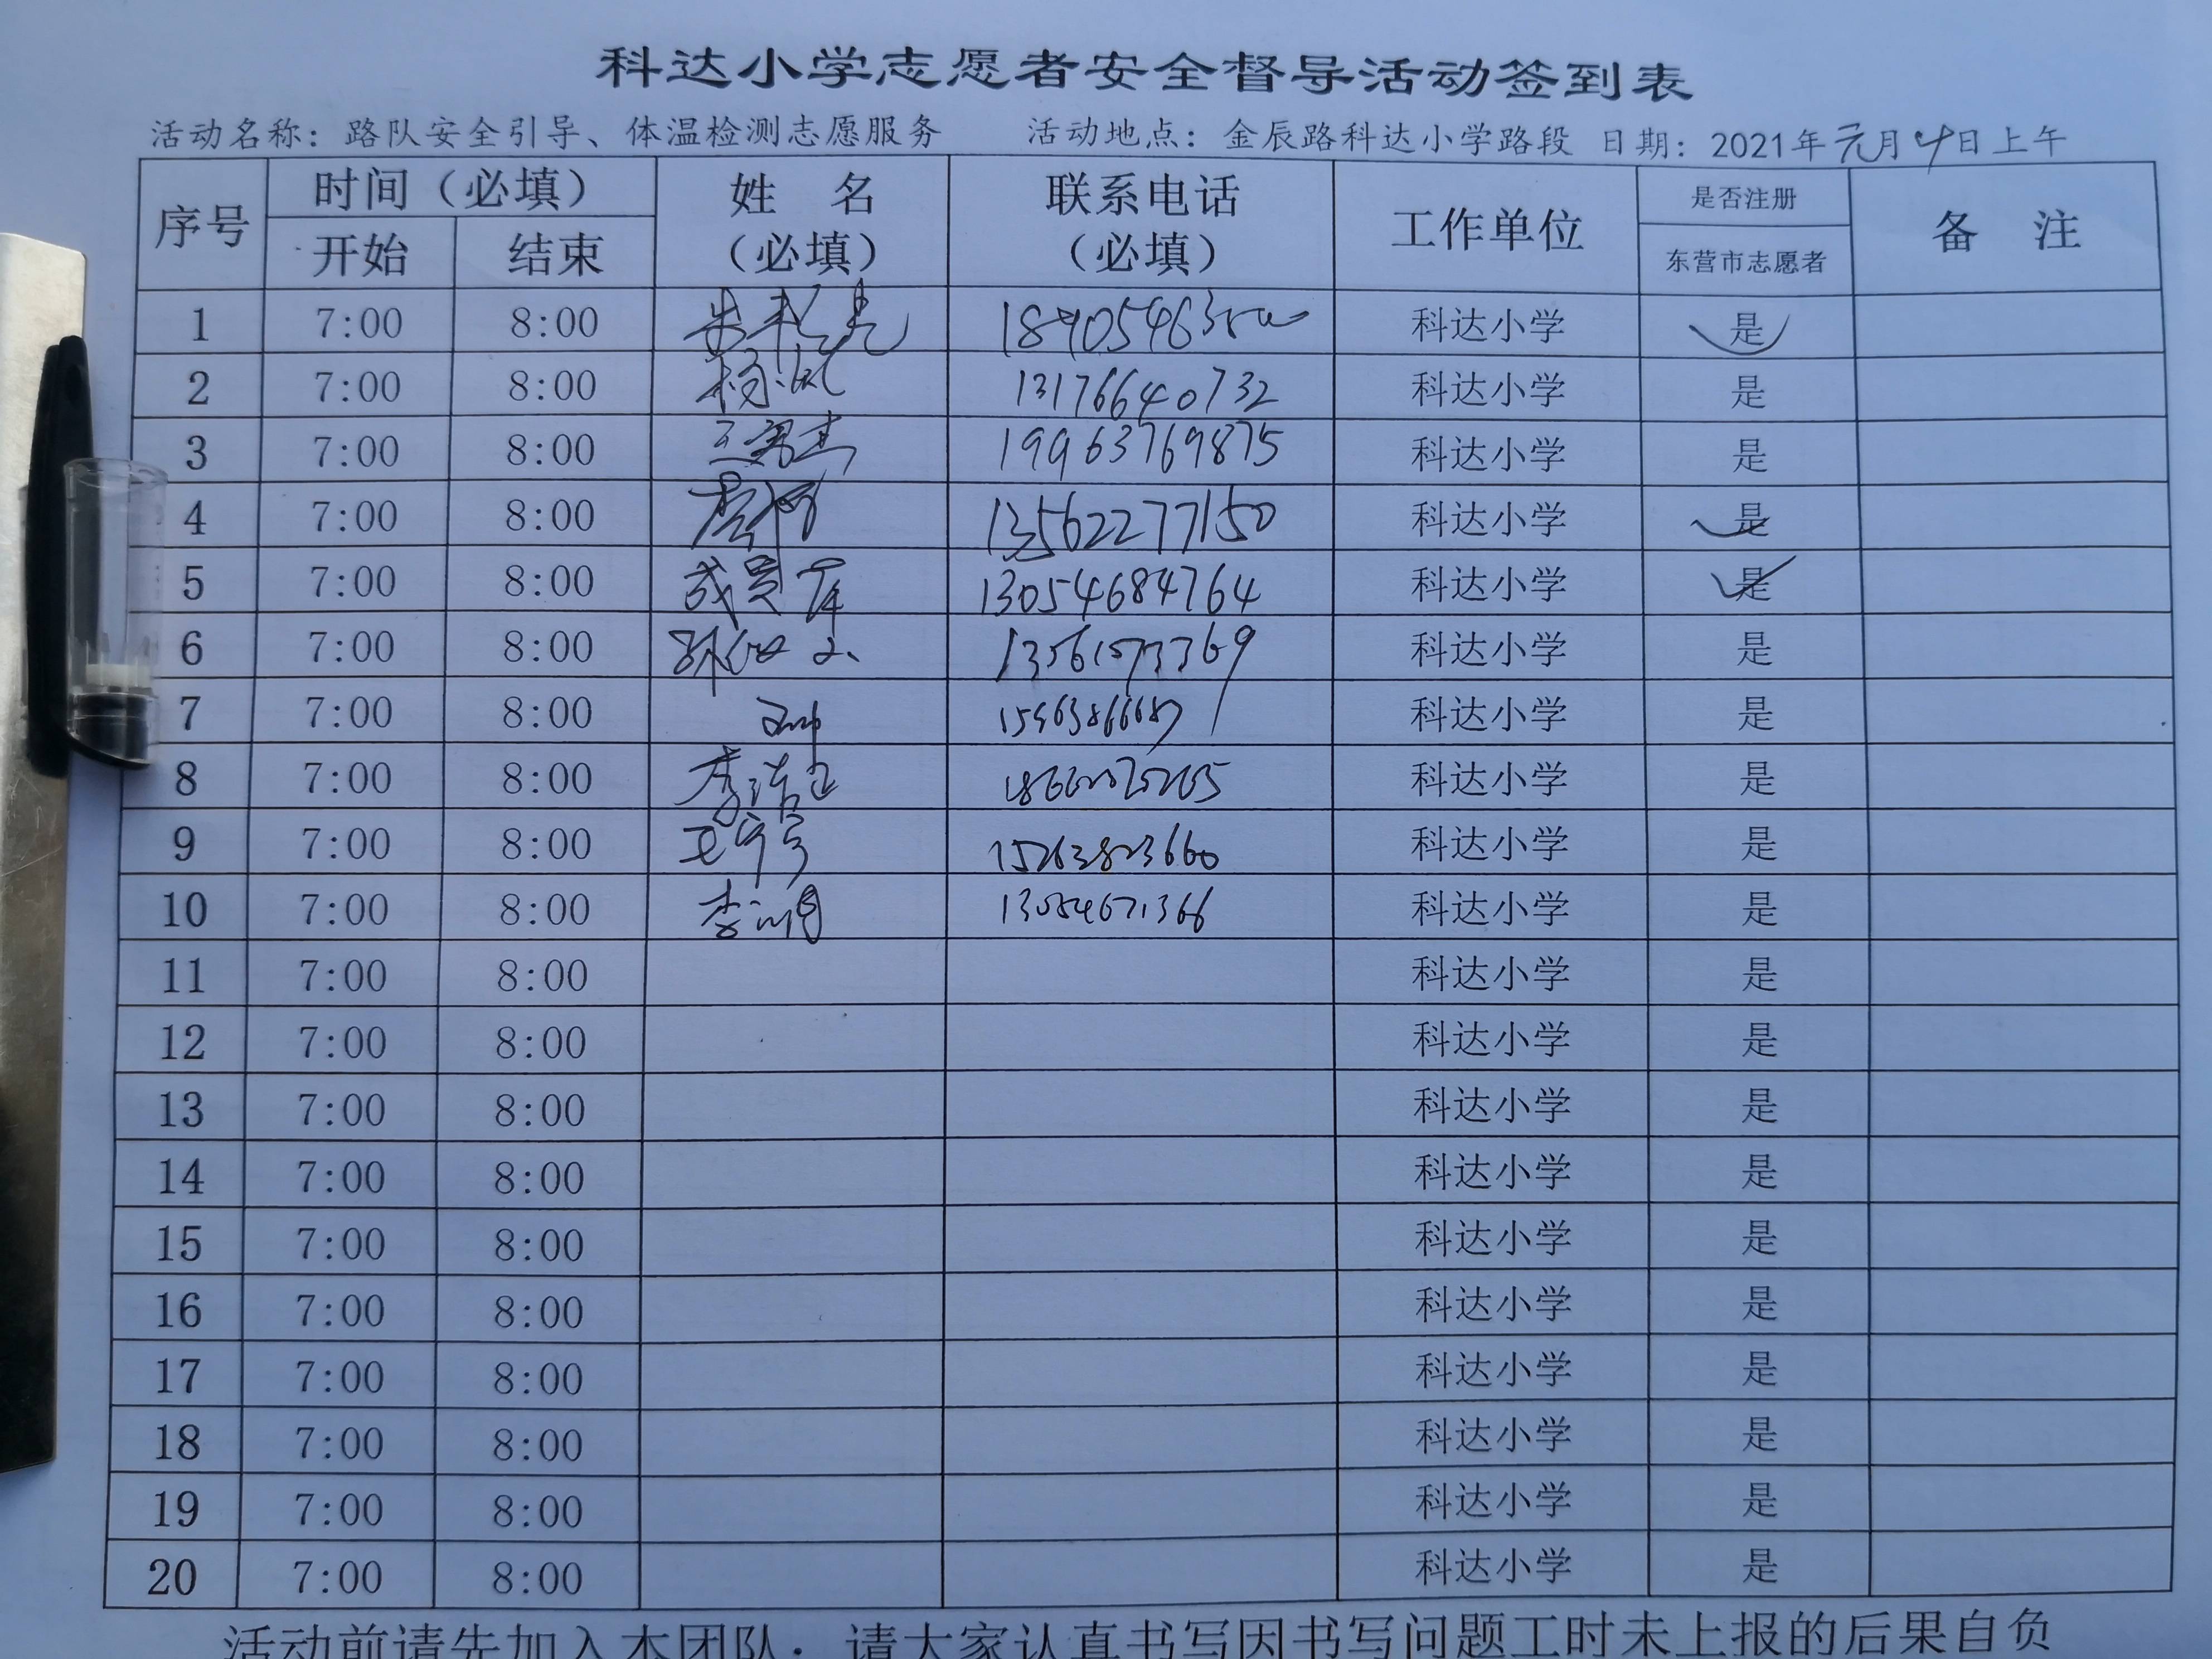 科达小学志愿者安全督导活动签到表
活动名称：路队安全引导、体温检测志愿服务 活动地点：金辰路科达小学路段 日期：2021年元月4日上午
序号 时间（必填） 姓 名（必填） 联系电话（必填） 工作单位 是否注册 备 注
开始 结束 东营市志愿者
1 7:00 8:00 科达小学 是
2 7:00 8:00 13176640732 科达小学 是
3 7:00 8:00 19963769875 科达小学 是
4 7:00 8:00 13562277150 科达小学 是
5 7:00 8:00 13054684764 科达小学 是
6 7:00 8:00 科达小学 是
7 7:00 8:00 科达小学 是
8 7:00 8:00 科达小学 是
9 7:00 8:00 科达小学 是
10 7:00 8:00 科达小学 是
11 7:00 8:00 科达小学 是
12 7:00 8:00 科达小学 是
13 7:00 8:00 科达小学 是
14 7:00 8:00 科达小学 是
15 7:00 8:00 科达小学 是
16 7:00 8:00 科达小学 是
17 7:00 8:00 科达小学 是
18 7:00 8:00 科达小学 是
19 7:00 8:00 科达小学 是
20 7:00 8:00 科达小学 是
活动前请先加入本团队；请大家认真书写因书写问题工时未上报的后果自负